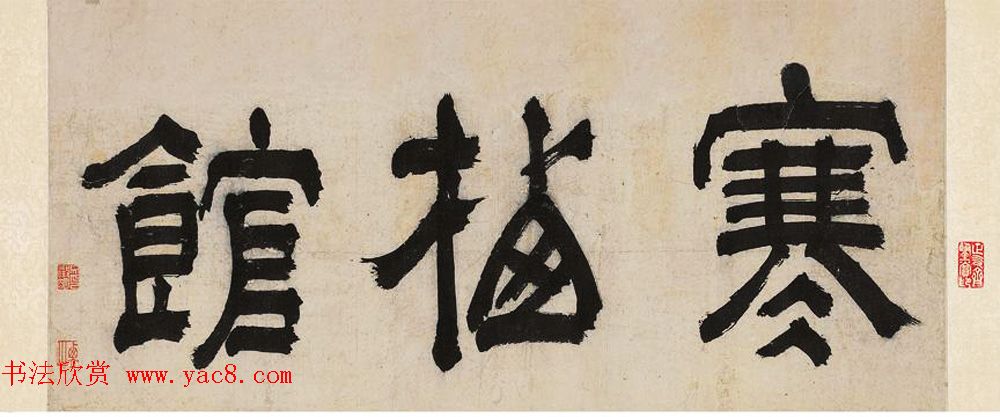 寒梅館
书法欣赏 www.yac8.com